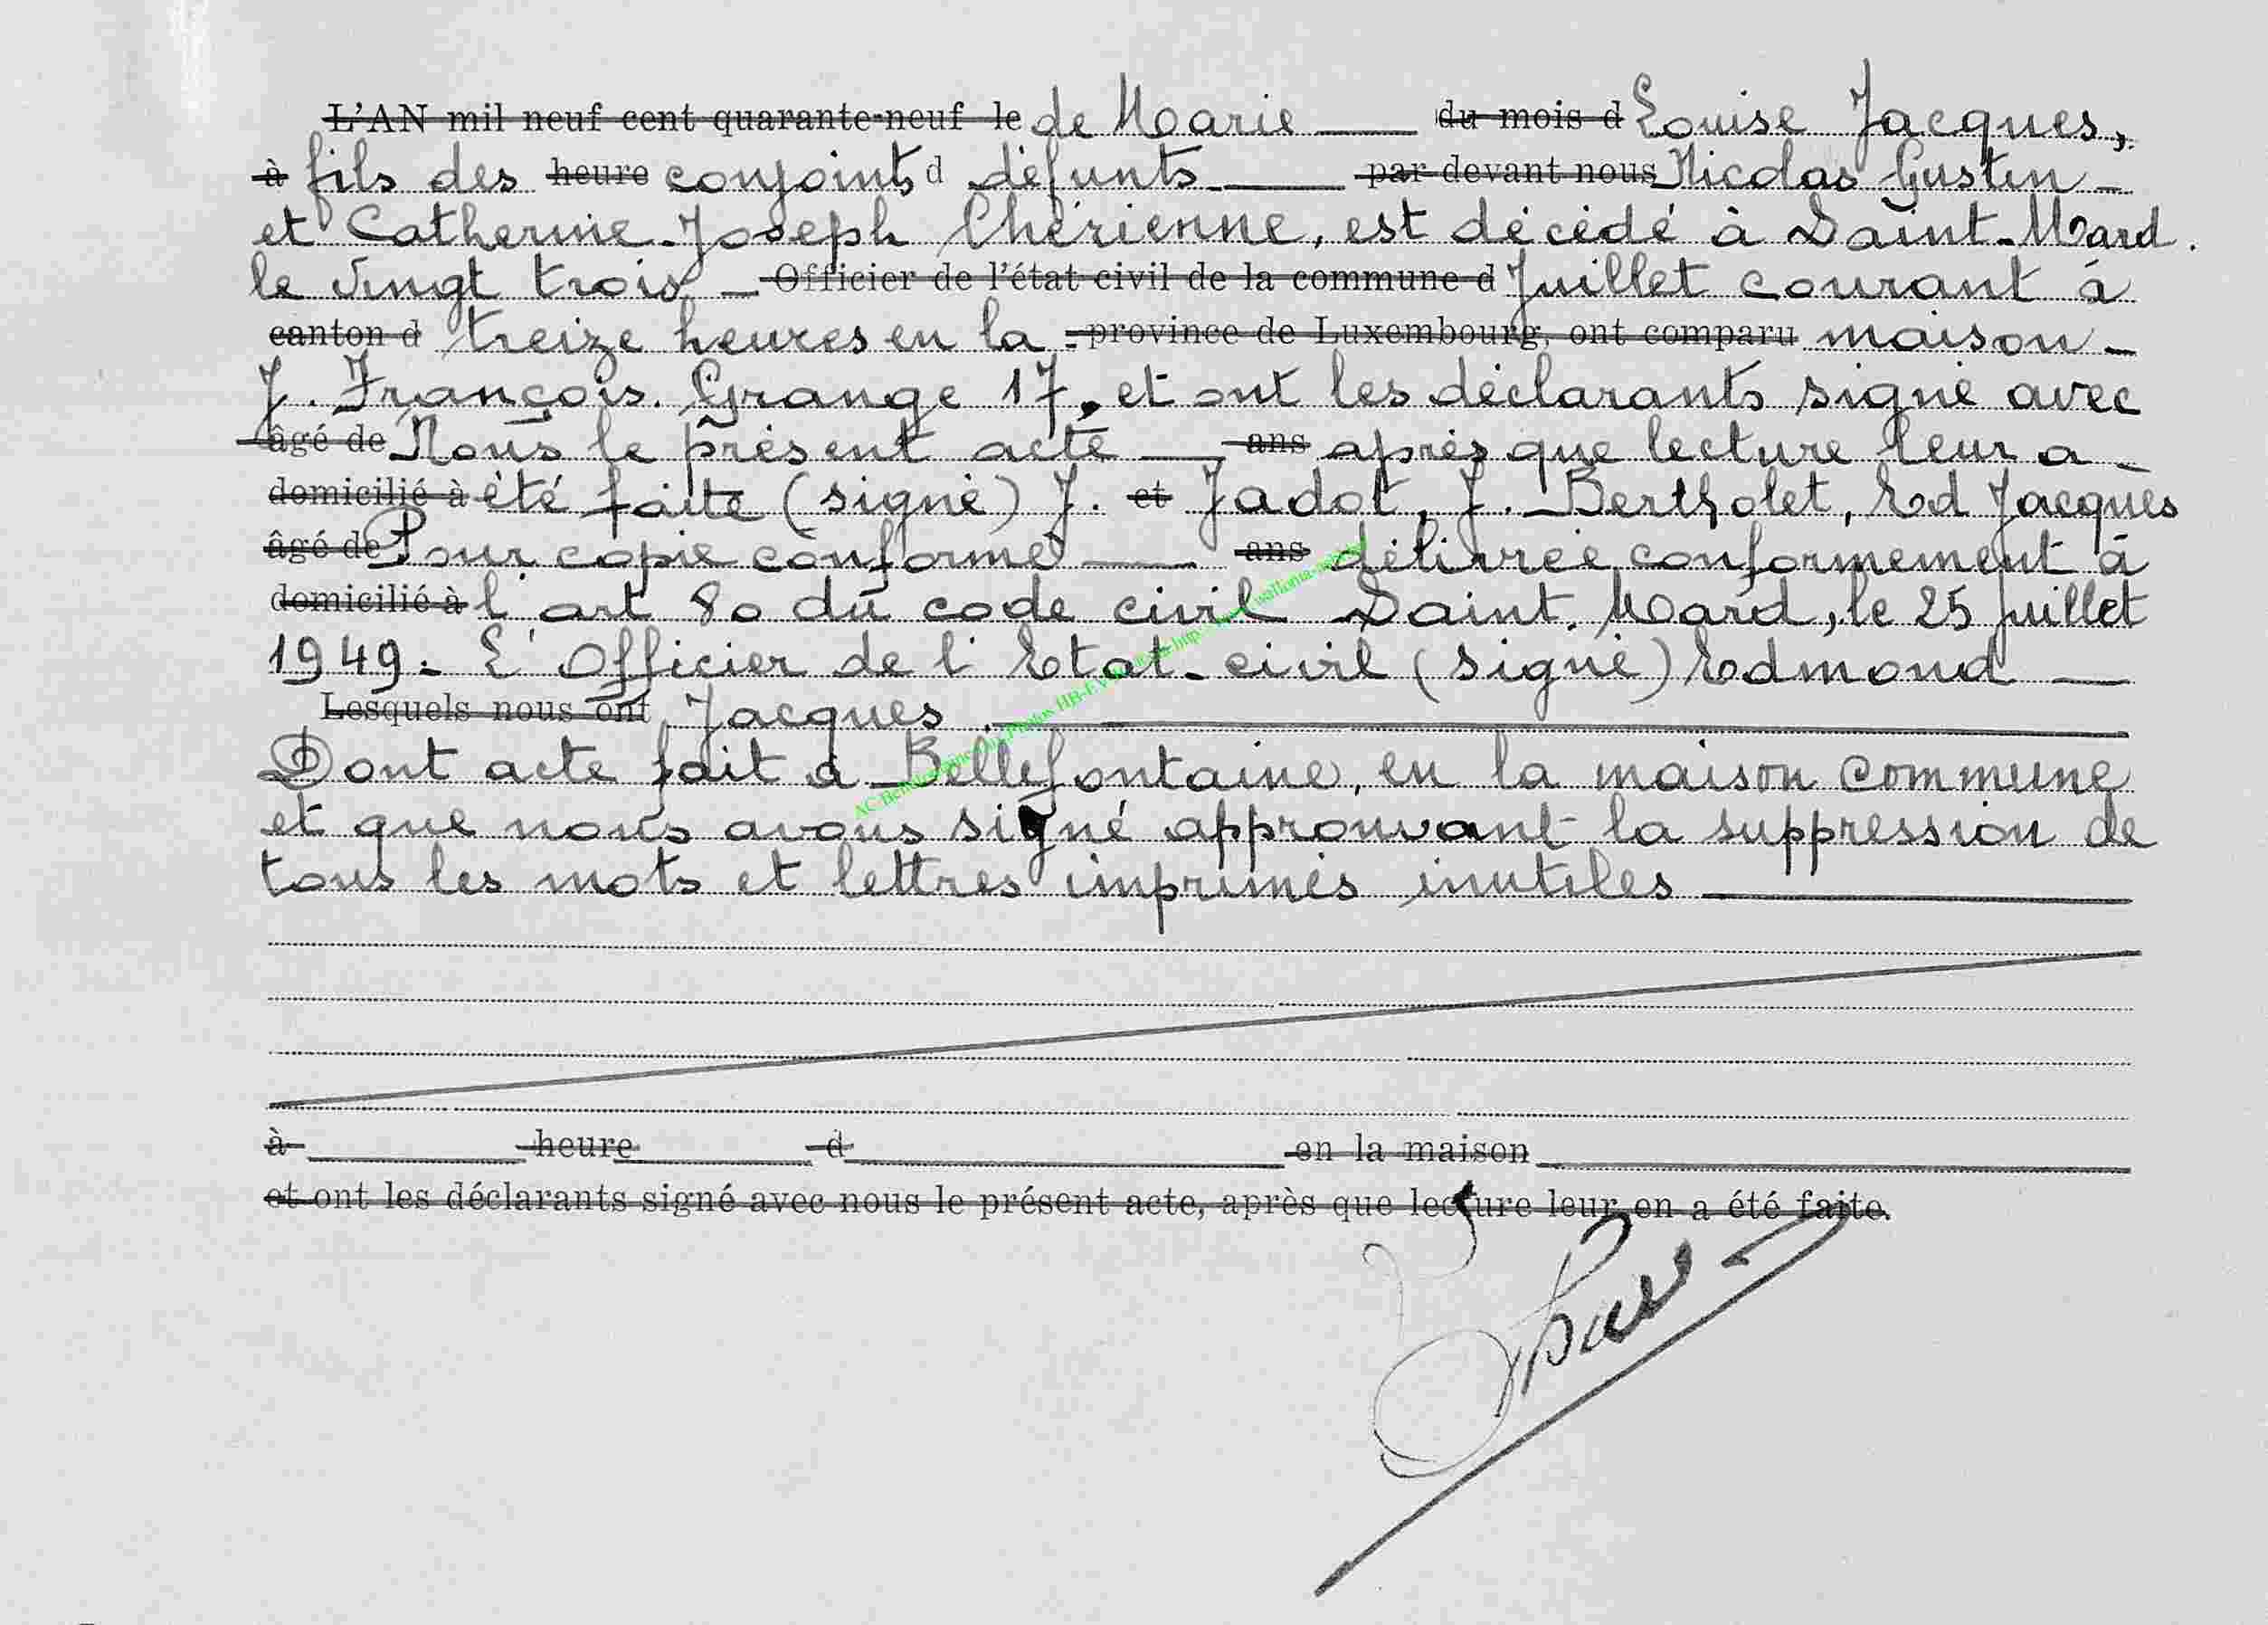 L'AN mil neuf cent quarante-neuf le de Marie — du mois d Louise Jacques,
à fils des heure conjoints d défunts — par devant nous Nicolas Gustin -
et Catherine-Joseph Thérienne, est décédé à Saint-Mard.
le vingt trois - Officier de l'état civil de la commune d Juillet courant à
canton d treize heures en la - province de Luxembourg, ont comparu maison -
J. François. Grange 17, et ont les déclarants signé avec
âgé de Nous le présent acte — ans après que lecture leur a -
domicilié à été faite (signé) J. et Jadot, J. Bertholet, Ed Jacques
âgé de Pour copie conforme — ans délivrée conformement à
domicilié à l'art 80 du code civil Saint. Mard, le 25 juillet
1949. L'Officier de l'Etat-civil (signé) Edmond —
Lesquels nous ont Jacques.
Dont acte fait à Bellefontaine, en la maison commune
et que nous avons signé approuvant la suppression de
tous les mots et lettres imprimés inutiles —
à heure d en la maison
et ont les déclarants signé avec nous le présent acte, après que lecture leur en a été faite.